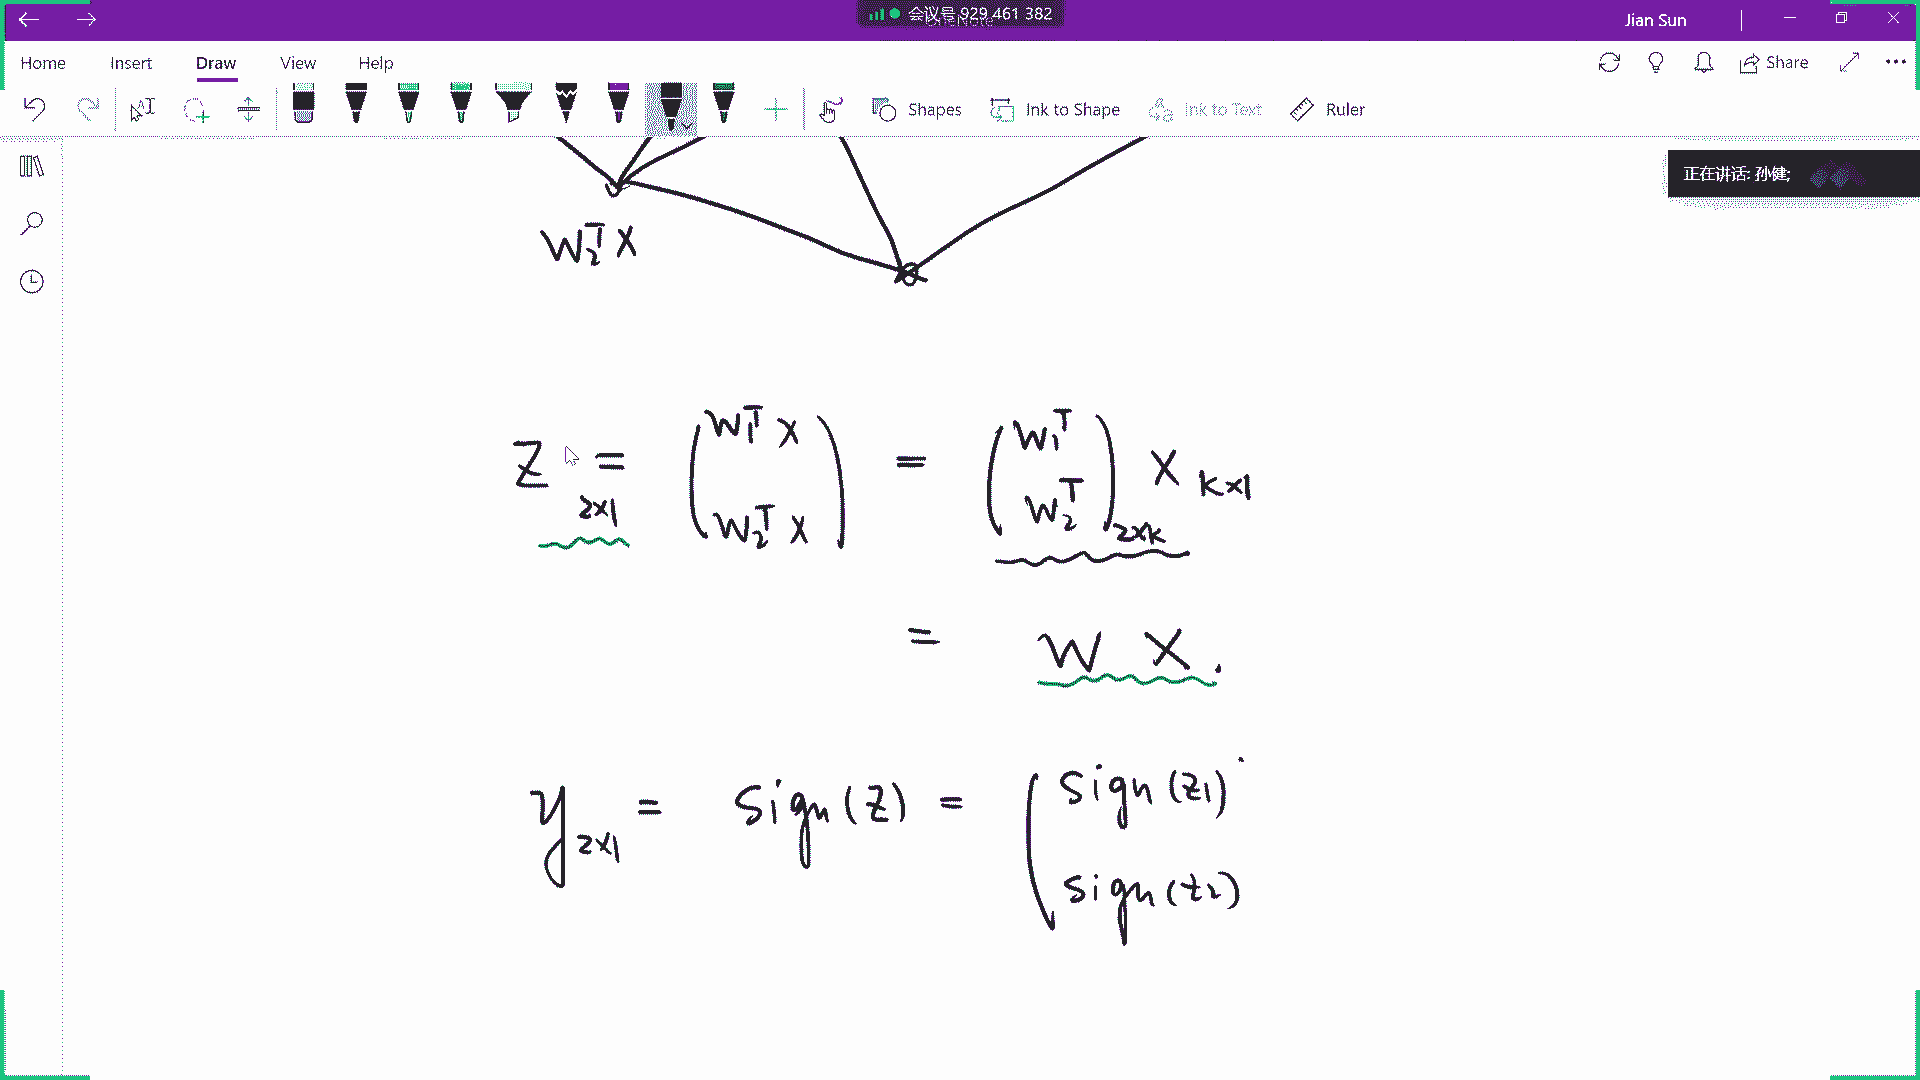 会议号 929 461 382
Jian Sun
Home Insert Draw View Help
Share
Shapes Ink to Shape Ink to Text Ruler
正在讲话: 孙健;
W₂ᵀ X
Z 2×1 = ( W₁ᵀ X W₂ᵀ X ) = ( W₁ᵀ W₂ᵀ ) 2×K X K×1
= W X .
y 2×1 = Sign (Z) = ( Sign (Z1)
Sign (Z2)